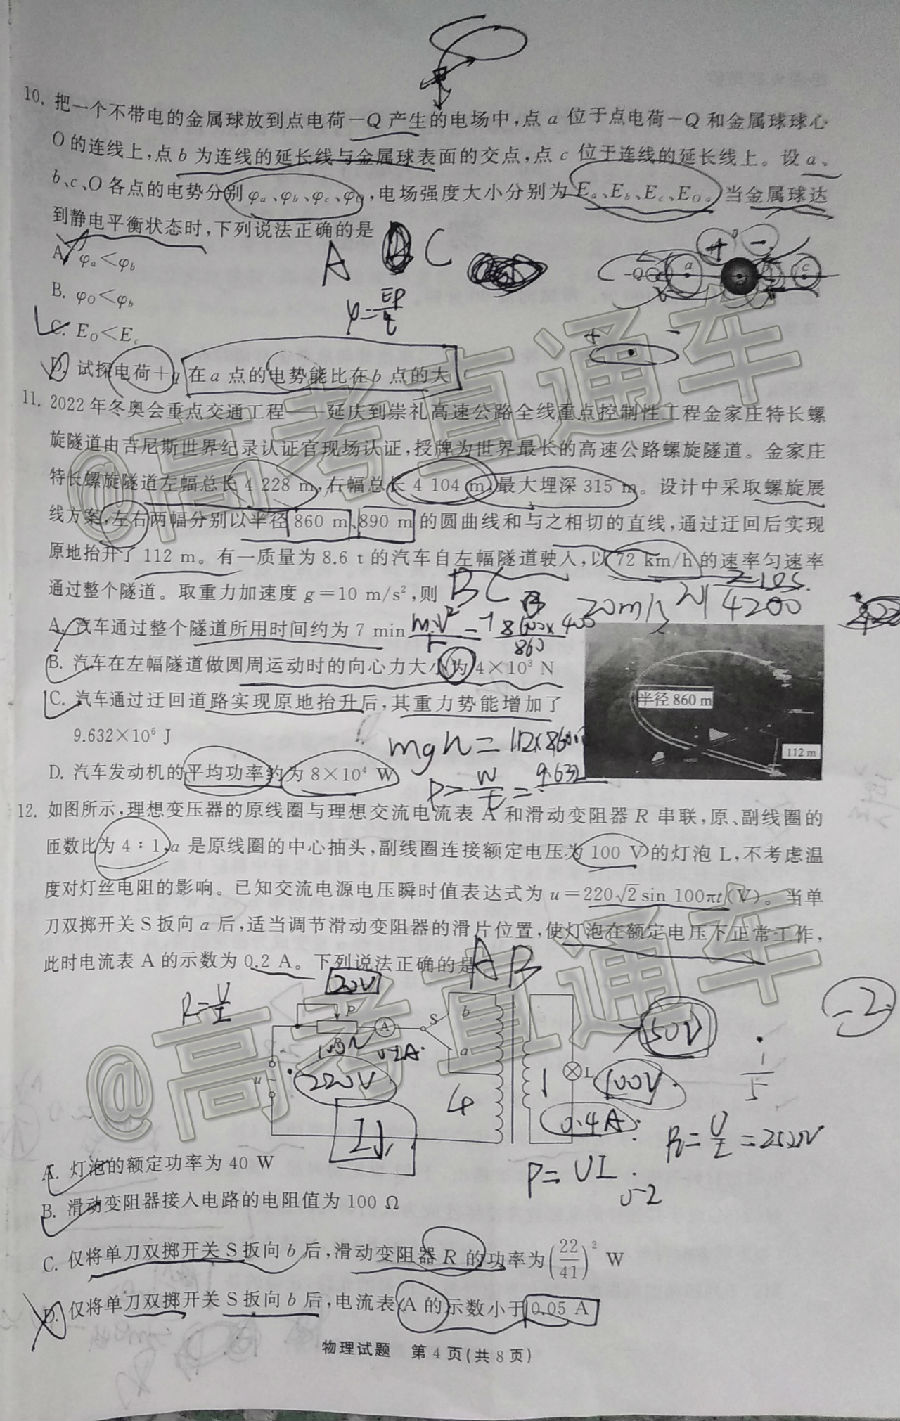 10. 把一个不带电的金属球放到点电荷-Q产生的电场中,点a位于点电荷-Q和金属球球心
O的连线上,点b为连线的延长线与金属球表面的交点,点c位于连线的延长线上。设a、
b、c、O各点的电势分别φa、φb、φc、φO,电场强度大小分别为Ea、Eb、Ec、EO。当金属球达
到静电平衡状态时,下列说法正确的是
A C
A. φa<φb
B. φO<φb
C. EO<Ec
D. 试探电荷+q在a点的电势能比在b点的大
11. 2022年冬奥会重点交通工程——延庆到崇礼高速公路全线重点控制性工程金家庄特长螺
旋隧道由吉尼斯世界纪录认证官现场认证,授牌为世界最长的高速公路螺旋隧道。金家庄
特长螺旋隧道左幅总长4 228 m,右幅总长4 104 m,最大埋深315 m。设计中采取螺旋展
线方案,左右两幅分别以半径860 m、890 m的圆曲线和与之相切的直线,通过迂回后实现
原地抬升了112 m。有一质量为8.6 t的汽车自左幅隧道驶入,以72 km/h的速率匀速率
通过整个隧道。取重力加速度g=10 m/s²,则
BC
20m/s
4200
A. 汽车通过整个隧道所用时间约为7 min
B. 汽车在左幅隧道做圆周运动时的向心力大小为4×10³ N
C. 汽车通过迂回道路实现原地抬升后,其重力势能增加了
9.632×10⁶ J
半径860 m
112 m
D. 汽车发动机的平均功率约为8×10⁴ W
12. 如图所示,理想变压器的原线圈与理想交流电流表A和滑动变阻器R串联,原、副线圈的
匝数比为4:1,a是原线圈的中心抽头,副线圈连接额定电压为100 V的灯泡L,不考虑温
度对灯丝电阻的影响。已知交流电源电压瞬时值表达式为u=220√2sin 100πt(V)。当单
刀双掷开关S扳向a后,适当调节滑动变阻器的滑片位置,使灯泡在额定电压下正常工作,
此时电流表A的示数为0.2 A。下列说法正确的是
AB
20V
S
b
a
A
0.2A
220V
4
1
L
50V
100V
0.4A
-2
P=UI
A. 灯泡的额定功率为40 W
B. 滑动变阻器接入电路的电阻值为100 Ω
C. 仅将单刀双掷开关S扳向b后,滑动变阻器R的功率为(22/41)² W
D. 仅将单刀双掷开关S扳向b后,电流表A的示数小于0.05 A
物理试题 第4页(共8页)
@高考直通车
@高考直通车